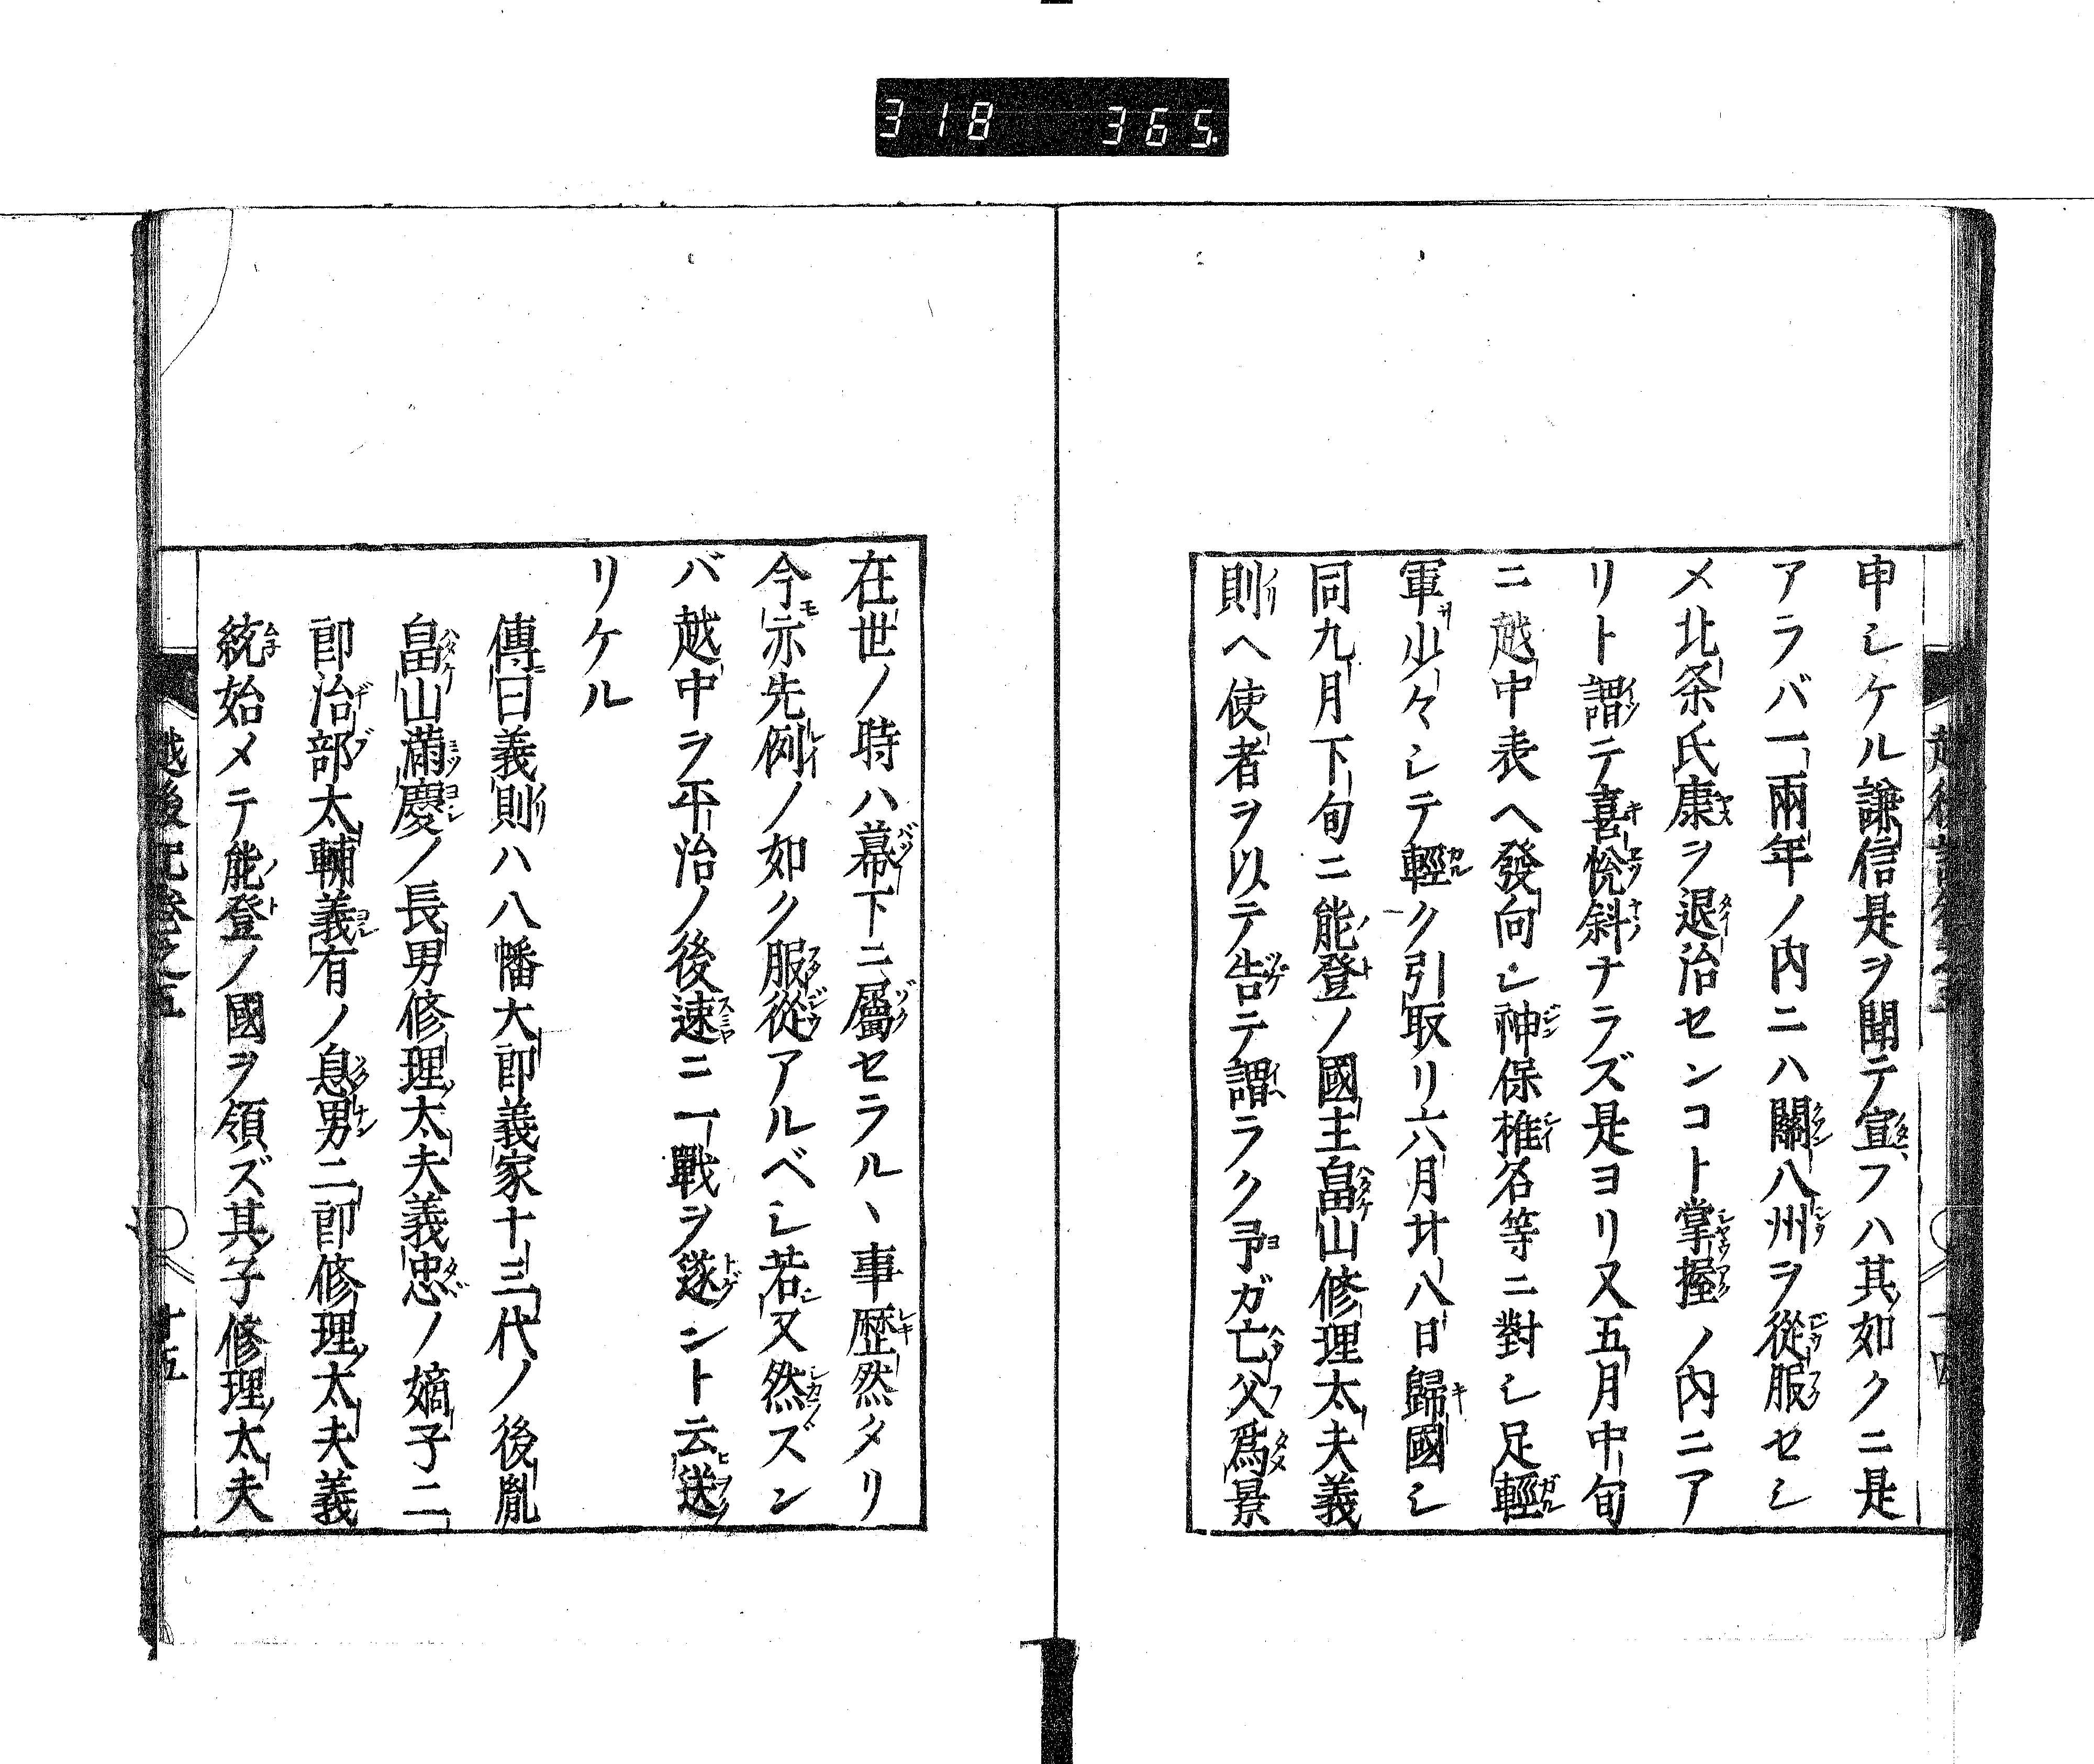 318 365
申シケル謙信是ヲ聞テ宣フハ其如クニ是
アラバ一兩年ノ内ニハ關八州ヲ從服セシ
メ北条氏康ヲ退治センコト掌握ノ内ニア
リト謂テ喜悅斜ナラズ是ヨリ又五月中旬
ニ越中表ヘ發向シ神保椎名等ニ對シ足輕
軍少々シテ輕ク引取リ六月廿八日歸國シ
同九月下旬ニ能登ノ國主畠山修理太夫義
則ヘ使者ヲ以テ告テ謂ラク予ガ亡父爲景
在世ノ時ハ幕下ニ屬セラル丶事歷然タリ
今亦先例ノ如ク服從アルベシ若又然ズン
バ越中ヲ平治ノ後速ニ一戰ヲ遂ント云送
リケル
傳曰義則ハ八幡大郎義家十三代ノ後胤
畠山滿慶ノ長男修理太夫義忠ノ嫡子二
郎治部太輔義有ノ息男二郎修理太夫義
統始メテ能登ノ國ヲ領ズ其子修理太夫
越後記卷之五 十五